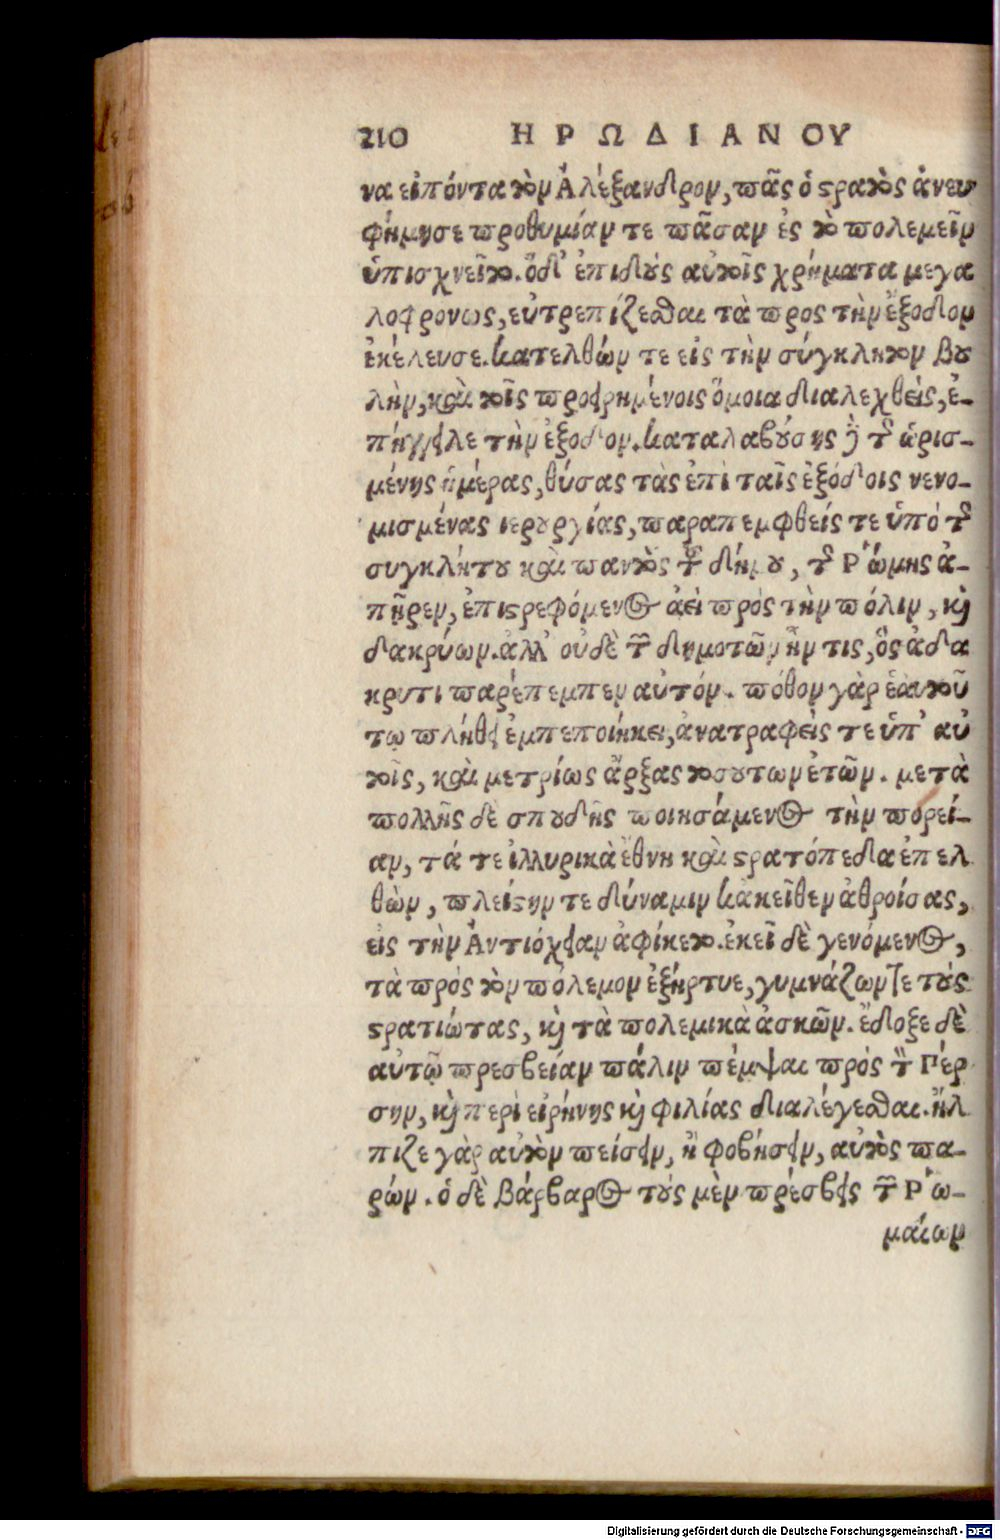 210 ΗΡΩΔΙΑΝΟΥ
να εἰπόντα τὸν Ἀλέξανδρον, πᾶς ὁ στρατὸς ἀνευ
φήμησε προθυμίαν τε πᾶσαν ἐς τὸ πολεμεῖν
ὑπισχνεῖτο. ὁ δ' ἐπιδοὺς αὐτοῖς χρήματα μεγα
λοφρόνως, εὐτρεπίζεσθαι τὰ πρὸς τὴν ἔξοδον
ἐκέλευσε. κατελθών τε εἰς τὴν σύγκλητον βου
λὴν, καὶ τοῖς προειρημένοις ὅμοια διαλεχθεὶς, ἐ-
πήγγειλε τὴν ἔξοδον. καταλαβούσης δὲ τῆς ὡρισ-
μένης ἡμέρας, θύσας τὰς ἐπὶ ταῖς ἐξόδοις νενο-
μισμένας ἱερουργίας, παραπεμφθείς τε ὑπὸ τῆς
συγκλήτου καὶ παντὸς τοῦ δήμου, τῆς Ῥώμης ἀ-
πῆρεν, ἐπιστρεφόμενος ἀεὶ πρὸς τὴν πόλιν, καὶ
δακρύων. ἀλλ' οὐδὲ τῶν δημοτῶν ἦν τις, ὃς ἀδα
κρυτὶ παρέπεμπεν αὐτόν. πόθον γὰρ ἑαυτοῦ
τῳ πλήθει ἐμπεποιήκει, ἀνατραφεὶς τε ὑπ' αὐ
τοῖς, καὶ μετρίως ἄρξας τοσούτων ἐτῶν. μετὰ
πολλῆς δὲ σπουδῆς ποιησάμενος τὴν πορεί-
αν, τά τε ἰλλυρικὰ ἔθνη καὶ στρατόπεδα ἐπελ
θὼν, πλείστην τε δύναμιν κἀκεῖθεν ἀθροίσας,
εἰς τὴν Ἀντιόχειαν ἀφίκετο. ἐκεῖ δὲ γενόμενος,
τὰ πρὸς τὸν πόλεμον ἐξήρτυε, γυμνάζων τε τοὺς
στρατιώτας, καὶ τὰ πολεμικὰ ἀσκῶν. ἔδοξε δὲ
αὐτῷ πρεσβείαν πάλιν πέμψαι πρὸς τὸν Πέρ
σην, καὶ περὶ εἰρήνης καὶ φιλίας διαλέγεσθαι. ἤλ
πιζε γὰρ αὐτὸν πείσειν, ἢ φοβήσειν, αὐτὸς πα-
ρών. ὁ δὲ βάρβαρος τοὺς μὲν πρέσβεις τῶν Ῥω-
μαίων
Digitalisierung gefördert durch die Deutsche Forschungsgemeinschaft - DFG